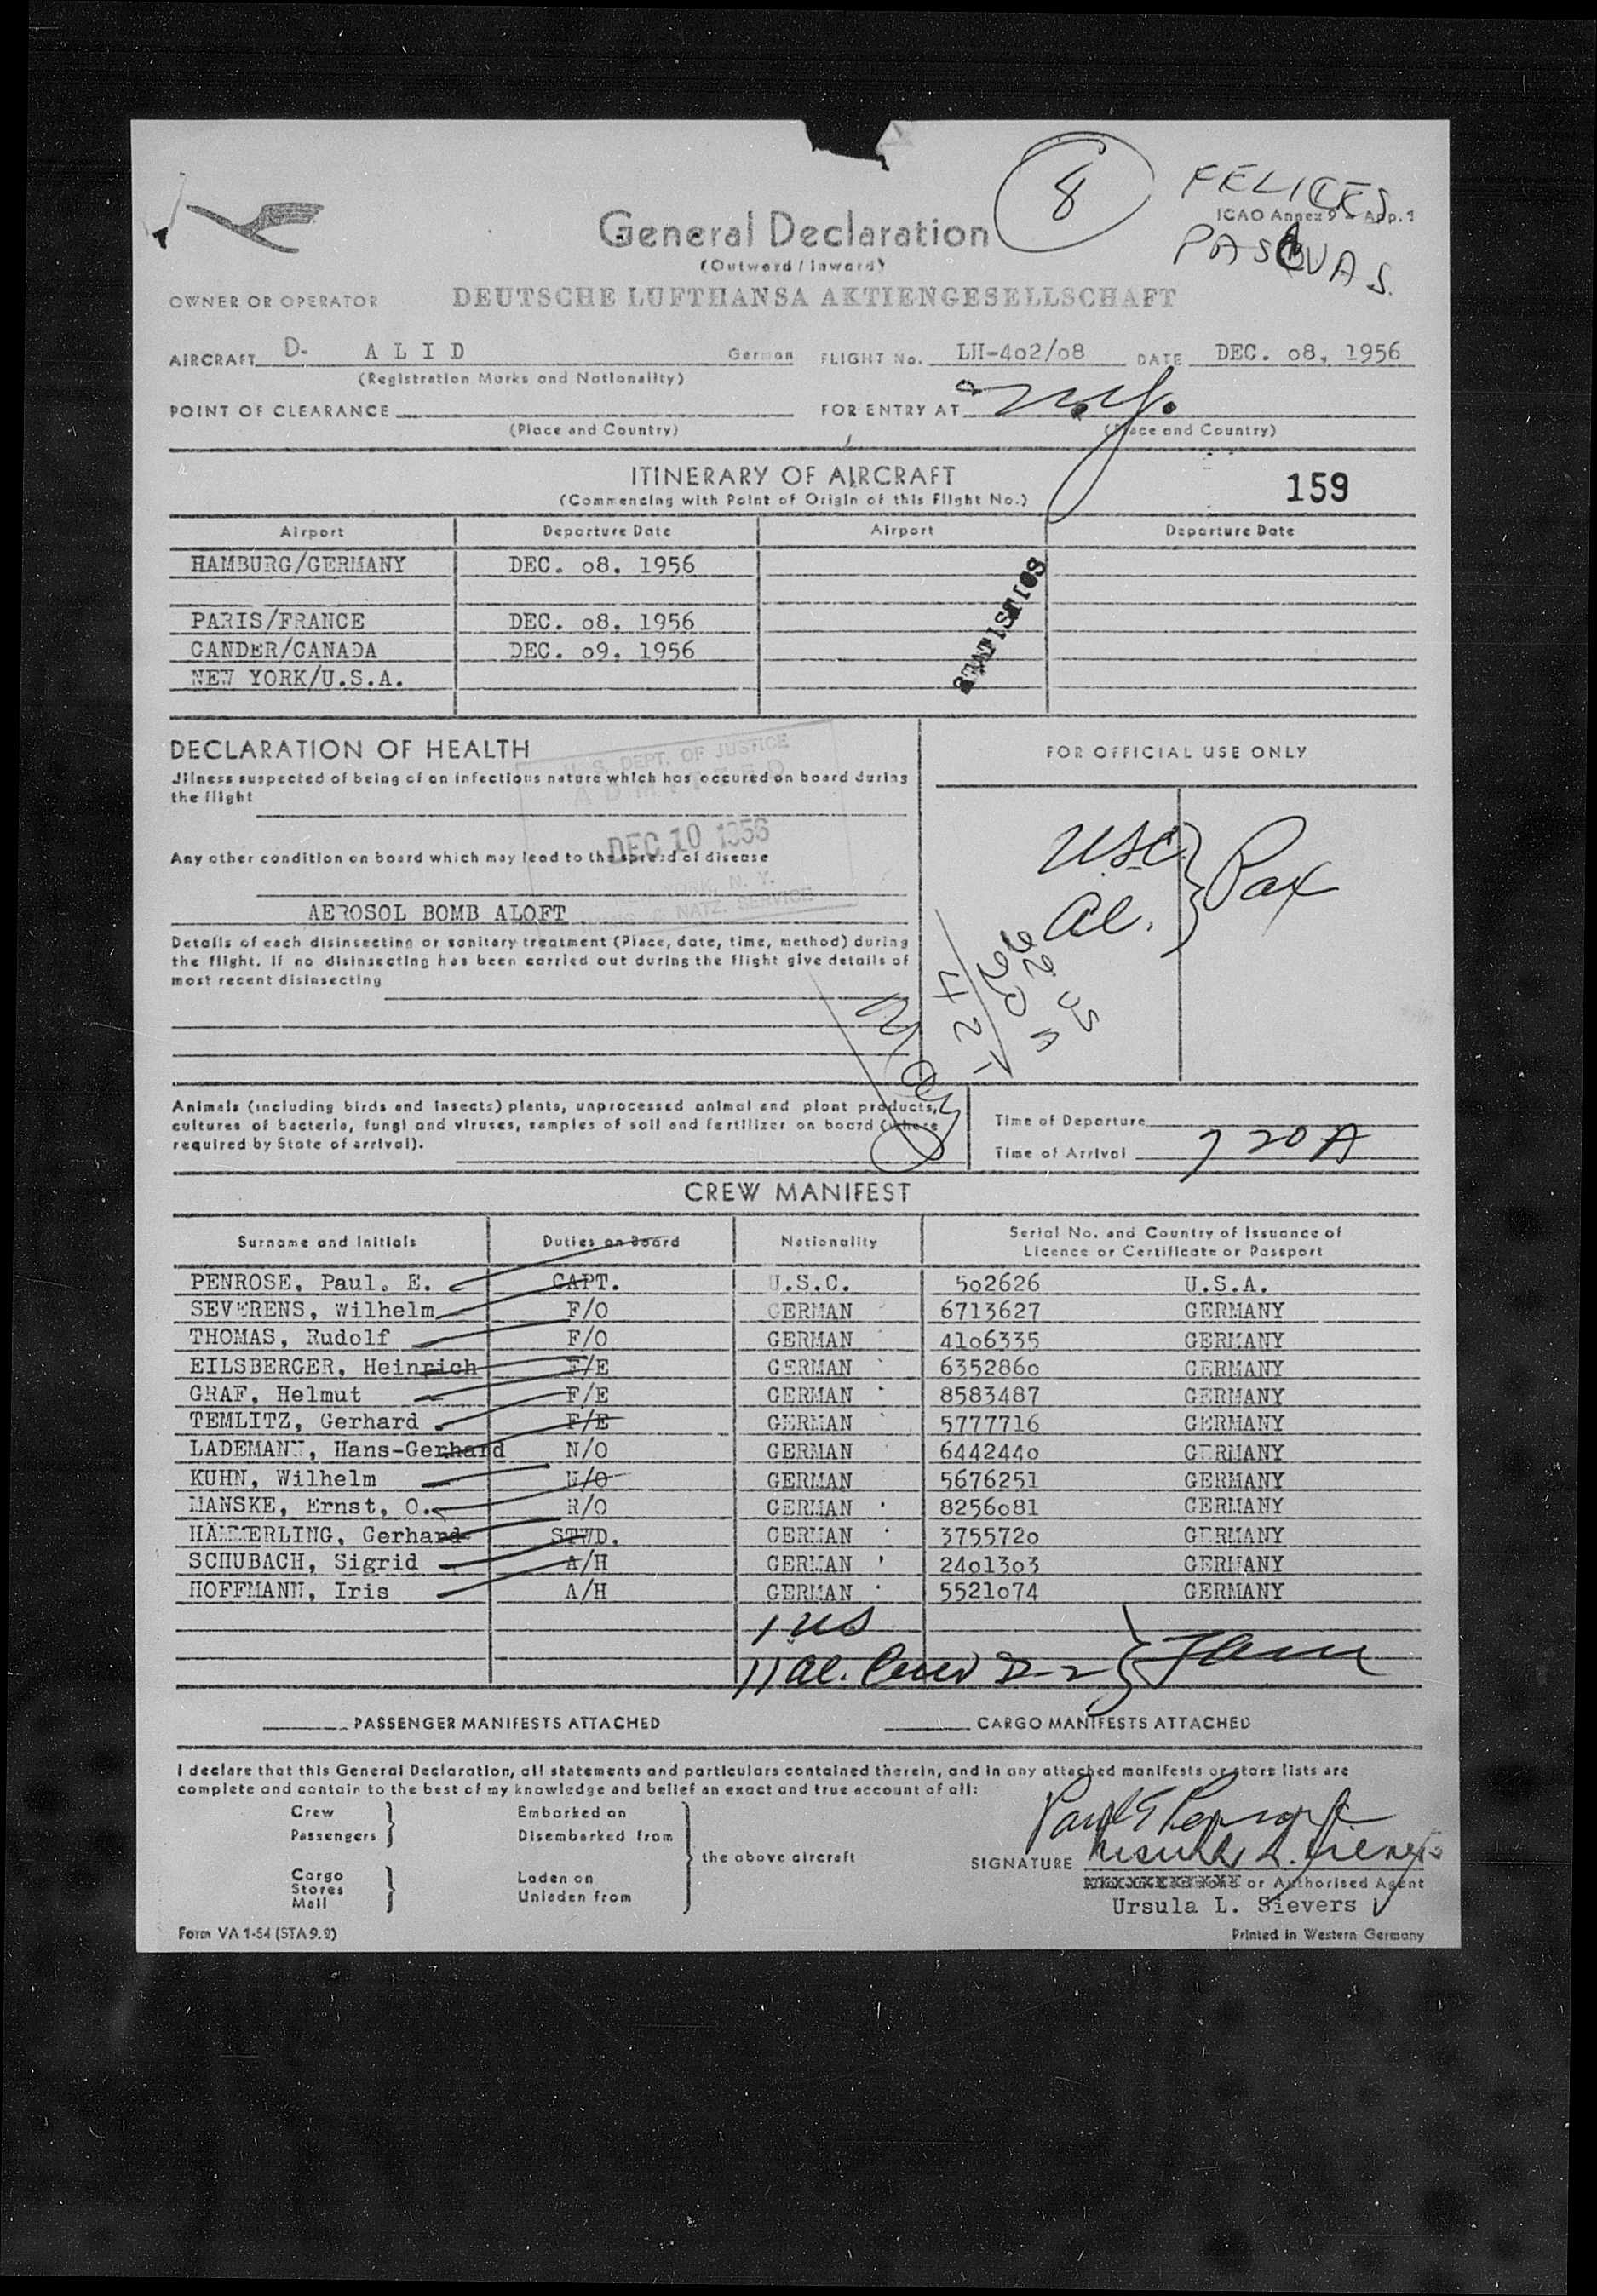 8
FELICES
PASQUAS.
ICAO Annex 9 - App. 1
General Declaration
(Outward / Inward)
OWNER OR OPERATOR DEUTSCHE LUFTHANSA AKTIENGESELLSCHAFT
AIRCRAFT D- ALID German FLIGHT No. LH-402/08 DATE DEC. 08, 1956
(Registration Marks and Nationality)
POINT OF CLEARANCE FOR ENTRY AT N.Y.
(Place and Country) (Place and Country)
ITINERARY OF AIRCRAFT
(Commencing with Point of Origin of this Flight No.)
159
Airport Departure Date Airport Departure Date
HAMBURG/GERMANY DEC. 08. 1956
PARIS/FRANCE DEC. 08. 1956
GANDER/CANADA DEC. 09. 1956
NEW YORK/U.S.A.
STATISTICS
DECLARATION OF HEALTH
FOR OFFICIAL USE ONLY
Jllness suspected of being of an infectious nature which has occured on board during
the flight
U. S. DEPT. OF JUSTICE
ADMITTED
DEC 10 1956
NEW YORK, N. Y.
IMMIG. & NATZ. SERVICE
Any other condition on board which may lead to the spread of disease
AEROSOL BOMB ALOFT
Details of each disinsecting or sanitary treatment (Place, date, time, method) during
the flight. If no disinsecting has been carried out during the flight give details of
most recent disinsecting
USC
al. } Pax
Animals (including birds and insects) plants, unprocessed animal and plant products,
cultures of bacteria, fungi and viruses, samples of soil and fertilizer on board (where
required by State of arrival).
Time of Departure
Time of Arrival 720A
CREW MANIFEST
Surname and Initials Duties on Board Nationality Serial No. and Country of Issuance of
Licence or Certificate or Passport
PENROSE, Paul. E. CAPT. U.S.C. 502626 U.S.A.
SEVERENS, Wilhelm F/O GERMAN 6713627 GERMANY
THOMAS, Rudolf F/O GERMAN 4106335 GERMANY
EILSBERGER, Heinrich F/E GERMAN 6352860 GERMANY
GRAF, Helmut F/E GERMAN 8583487 GERMANY
TEMLITZ, Gerhard F/E GERMAN 5777716 GERMANY
LADEMANN, Hans-Gerhard N/O GERMAN 6442440 GERMANY
KUHN, Wilhelm N/O GERMAN 5676251 GERMANY
MANSKE, Ernst, O. R/O GERMAN 8256081 GERMANY
HÄMMERLING, Gerhard STWD. GERMAN 3755720 GERMANY
SCHUBACH, Sigrid A/H GERMAN 2401303 GERMANY
HOFFMANN, Iris A/H GERMAN 5521074 GERMANY
1 us
11 al. Crew D-2 }
PASSENGER MANIFESTS ATTACHED CARGO MANIFESTS ATTACHED
I declare that this General Declaration, all statements and particulars contained therein, and in any attached manifests or store lists are
complete and contain to the best of my knowledge and belief an exact and true account of all:
Crew Embarked on
Passengers Disembarked from
the above aircraft
Cargo Laden on
Stores
Mail Unladen from
Paul E Penrose
SIGNATURE Ursula L. Sievers
or Authorised Agent
Ursula L. Sievers
Form VA 1-54 (STA 9.2) Printed in Western Germany